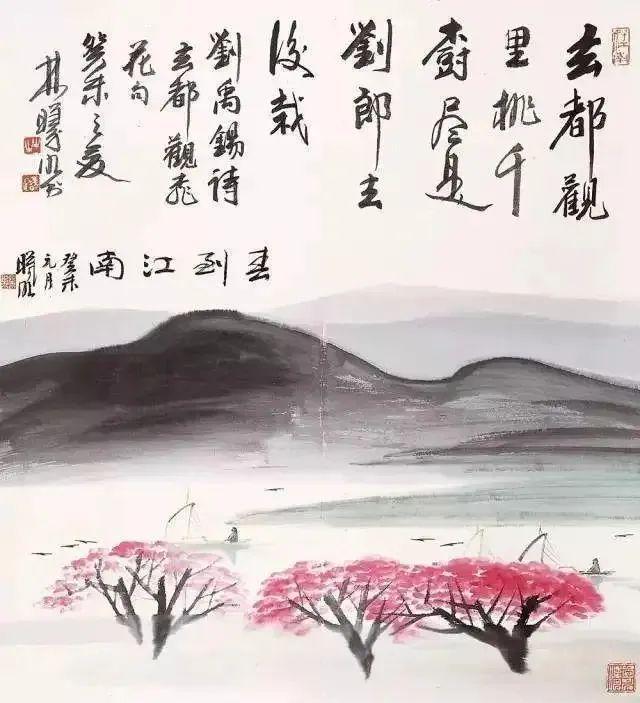 玄都觀
里桃千
樹尽是
劉郎去
後栽
劉禹錫詩
玄都觀桃
花句
癸未之夏
林曦明书
春到江南
癸未
元月
曦明